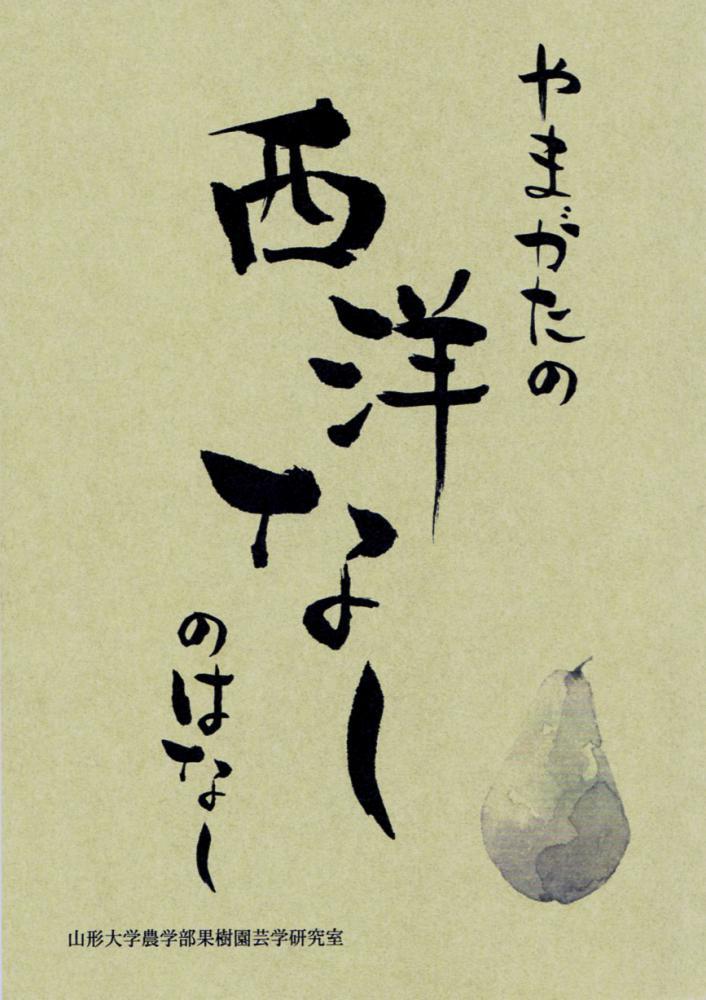 やまがたの
西洋なし
のはなし
山形大学農学部果樹園芸学研究室